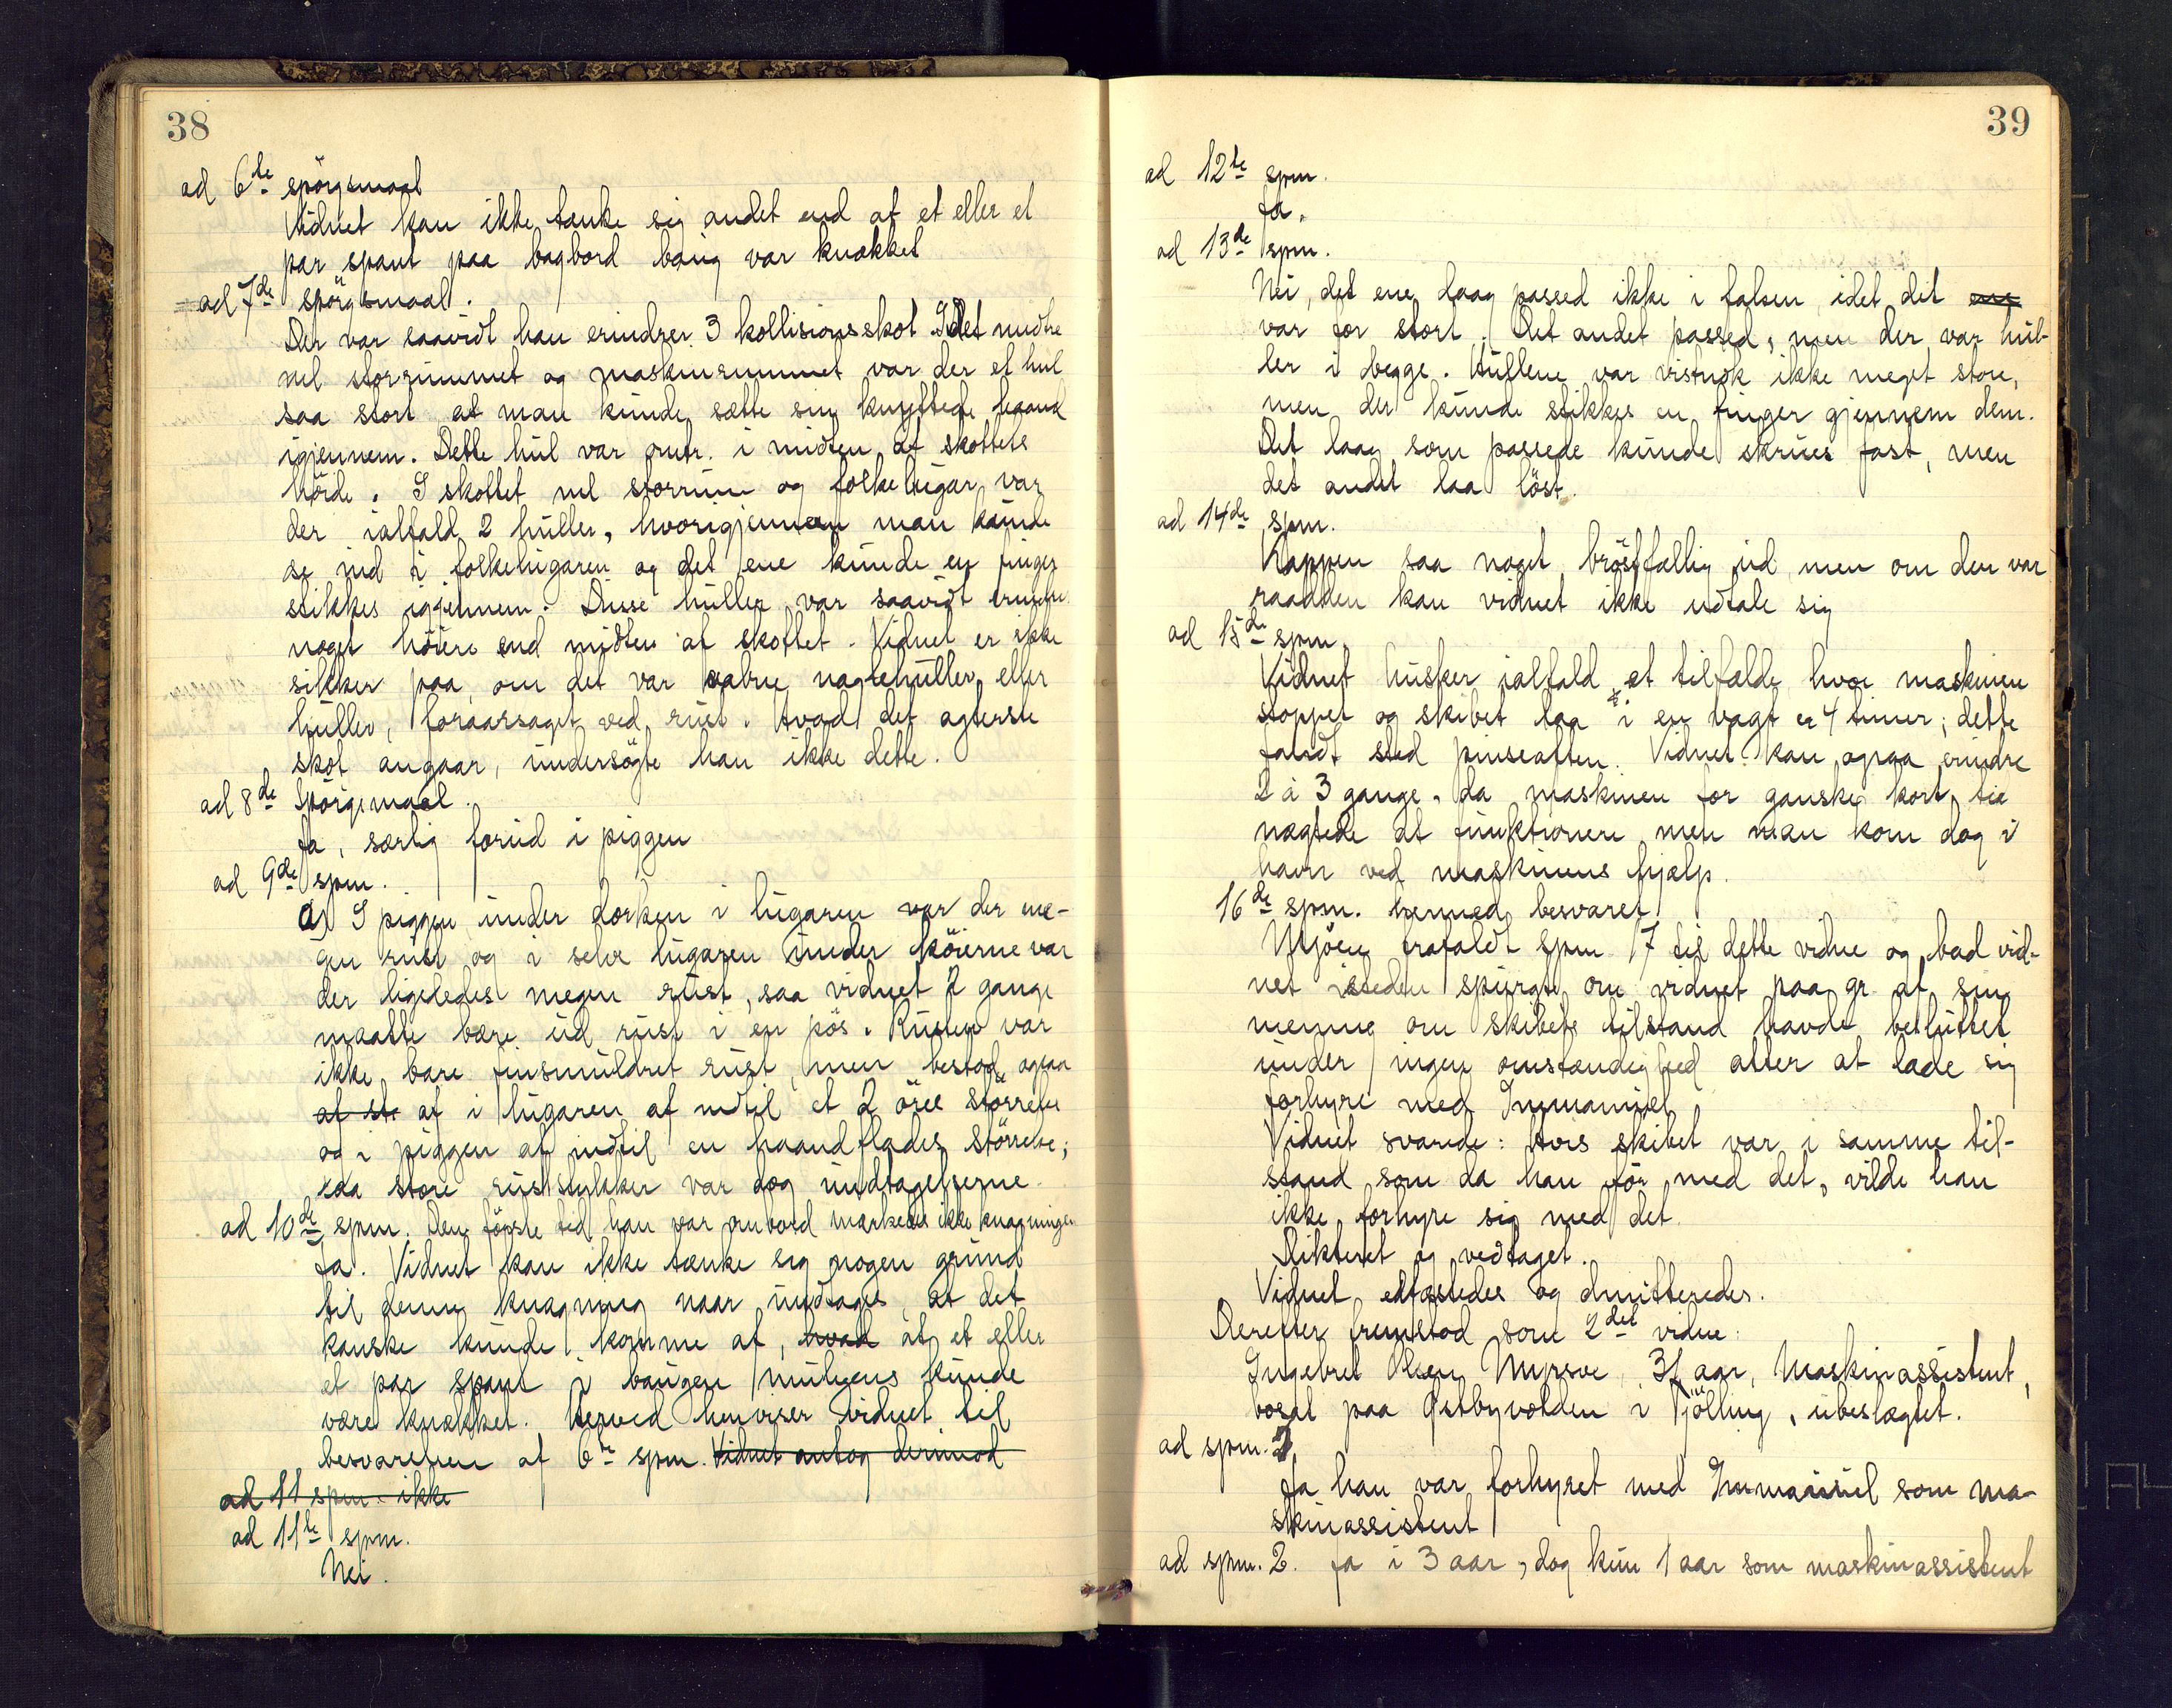 38
ad 6te spörgsmaal
Vidnet kan ikke tænke sig andet end at et eller et
par spant paa bagbord baug var knækket
ad 7de spörgsmaal.
Der var saavidt han erindrer 3 kollisionsskot. I det midtre
mel storrummet og maskinrummet var der et hul
saa stort at man kunde sætte sin knyttede haand
igjennem. Dette hul var omtr. i midten af skottets
höide. I skottet mel storrum og folkelugar var
der ialfald 2 huller, hvorigjennem man kunde
se ind i folkelugaren og det ene kunde en finger
stikkes igjennem. Disse huller var saavidt erindr
noget höiere end midten af skottet. Vidnet er ikke
sikker paa, om det var aabne naglehuller eller
huller, foraarsaget ved rust. Hvad det agterste
skot angaar, undersögte han ikke dette.
ad 8de Spörgsmaal.
Ja, særlig forud i piggen
ad 9de spm.
a) I piggen under dørken i lugaren var der me-
gen rust og i selve lugaren under köierne var
der ligeledes megen rust, saa vidnet 2 gange
maatte bære ud rust i en pös. Rusten var
ikke bare finsmuldret rust, men bestod ogsaa
af st. af i lugaren af indtil et 2 öres störrelse
og i piggen af indtil en haandflades störrelse;
saa store ruststykker var dog undtagelserne.
ad 10de spm. Den förste tid han var ombord mærkedes ikke knagningen
Ja. Vidnet kan ikke tænke sig nogen grund
til denne knagning naar undtages, at det
kanske kunde komme af, hvad at et eller
et par spant i baugen muligens kunde
være knækket. Herved henviser vidnet til
besvarelsen af 6te spm. Vidnet antog derimod
ad 11 spm. ikke
ad 11te spm.
Nei.
39
ad 12te spm.
Ja.
ad 13de spm.
Nei, det ene laag passed ikke i falsen, idet det ene
var for stort. Det andet passed, men der var hul-
ler i begge. Hullene var vistnok ikke meget store,
men der kunde stikkes en finger gjennem dem.
Det laag som passede kunde skrues fast, men
det andet laa löst.
ad 14de spm.
Kappen saa noget bröstfældig ud, men om den var
raadden kan vidnet ikke udtale sig
ad 15de spm.
Vidnet husker ialfald et tilfælde hvor maskinen
stoppet og skibet laa i en vagt ca 4 timer; dette
fandt sted pinseaften. Vidnet kan ogsaa erindre
2 à 3 gange, da maskinen for ganske kort tid
nægtede at funktionere, men man kom dog i
havn ved maskinens hjælp.
16de spm. hermed besvaret
Mjöen frafaldt spm. 17 til dette vidne og bad vid-
net isteden spurgt, om vidnet paa gr. af sin
mening om skibets tilstand havde besluttet
under ingen omstændighed atter at lade sig
forhyre med Immanuel.
Vidnet svarede: Hvis skibet var i samme til-
stand som da han för med det, vilde han
ikke forhyre sig med det.
Dikteret og vedtaget.
Vidnet edfæstedes og dmitteredes.
Derefter fremstod som 2det vidne:
Ingebret Olsen Myrsve, 31 aar, Maskinassistent,
bosat paa Østbyvolden i Tjölling, ubeslægtet.
ad spm. 1
Ja han var forhyret med Immanuel som ma-
skinassistent
ad spm. 2. Ja i 3 aar, dog kun 1 aar som maskinassistent